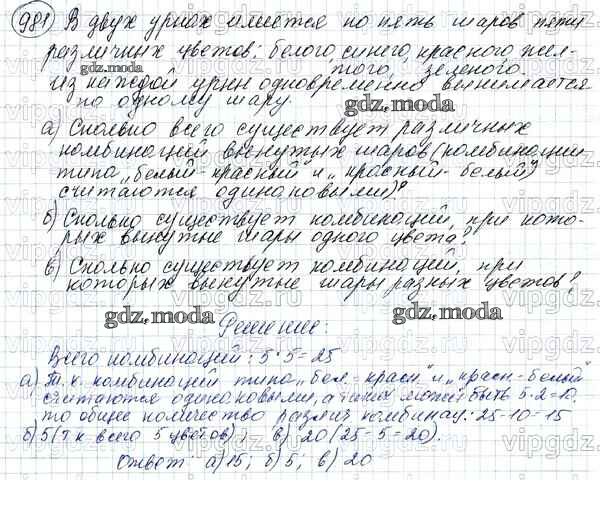 981 В двух урнах имеется по пять шаров пяти
различных цветов: белого, синего, красного жел-
того, зеленого.
Из каждой урны одновременно вынимается
по одному шару.
а) Сколько всего существует различных
комбинаций вынутых шаров (комбинации
типа „белый-красный“ и „красный-белый“)
считаются одинаковыми)?
б) Сколько существует комбинаций, при кото-
рых вынутые шары одного цвета?
в) Сколько существует комбинаций, при
которых вынутые шары разных цветов?
Решение:
Всего комбинаций: 5·5=25
а) Т.к. комбинаций типа „бел.-красн“ и „красн-белый“
считаются одинаковыми, а таких может быть 5·2=10,
то общее количество различ комбинац.: 25-10=15
б) 5 (т.к всего 5 цветов); в) 20 (25-5=20).
Ответ: а) 15; б) 5; в) 20
gdz.moda
gdz.moda
gdz.moda
gdz.moda
vipgdz.ru